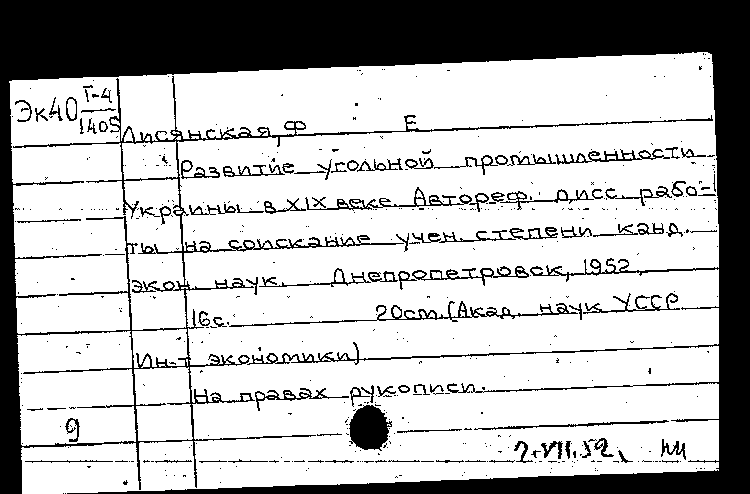 Эк40 Г-4
1405
Лисянская, Ф Е
Развитие угольной промышленности
Украины в XIX веке. Автореф. дисс. рабо-
ты на соискание учен. степени канд.
экон. наук. Днепропетровск, 1952.
16с. 20cm. (Акад. наук УССР
Ин-т экономики)
На правах рукописи.
9
7.VII.52.